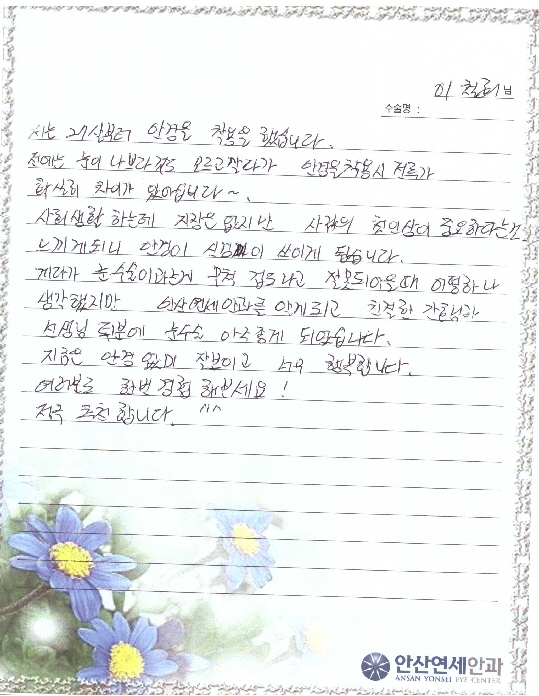 이 님
수술명 :
저는 21살부터 안경을 착용을 했습니다.
전에는 눈이 나쁘다 모르고 갔다가 안경을 착용시
확실히 차이가 있어습니다~.
사회생활 하는데 지장은 없지만 사람의 첫인상이 중요하다는걸
느끼게되니 안경이 신경이 쓰이게 됐습니다.
게다가 눈수술이라는게 무척 겁도나고 잘못되어을때 어떻하나
생각했지만 안산연세안과를 알게되고 친절한 간호사와
선생님 덕분에 눈수술 아주좋게 되었습니다.
지금은 안경 없이 잘보이고 너무 행복합니다.
여러분도 한번 경험 해보세요 !
적극 추천합니다. ^^
안산연세안과
ANSAN YONSEI EYE CENTER